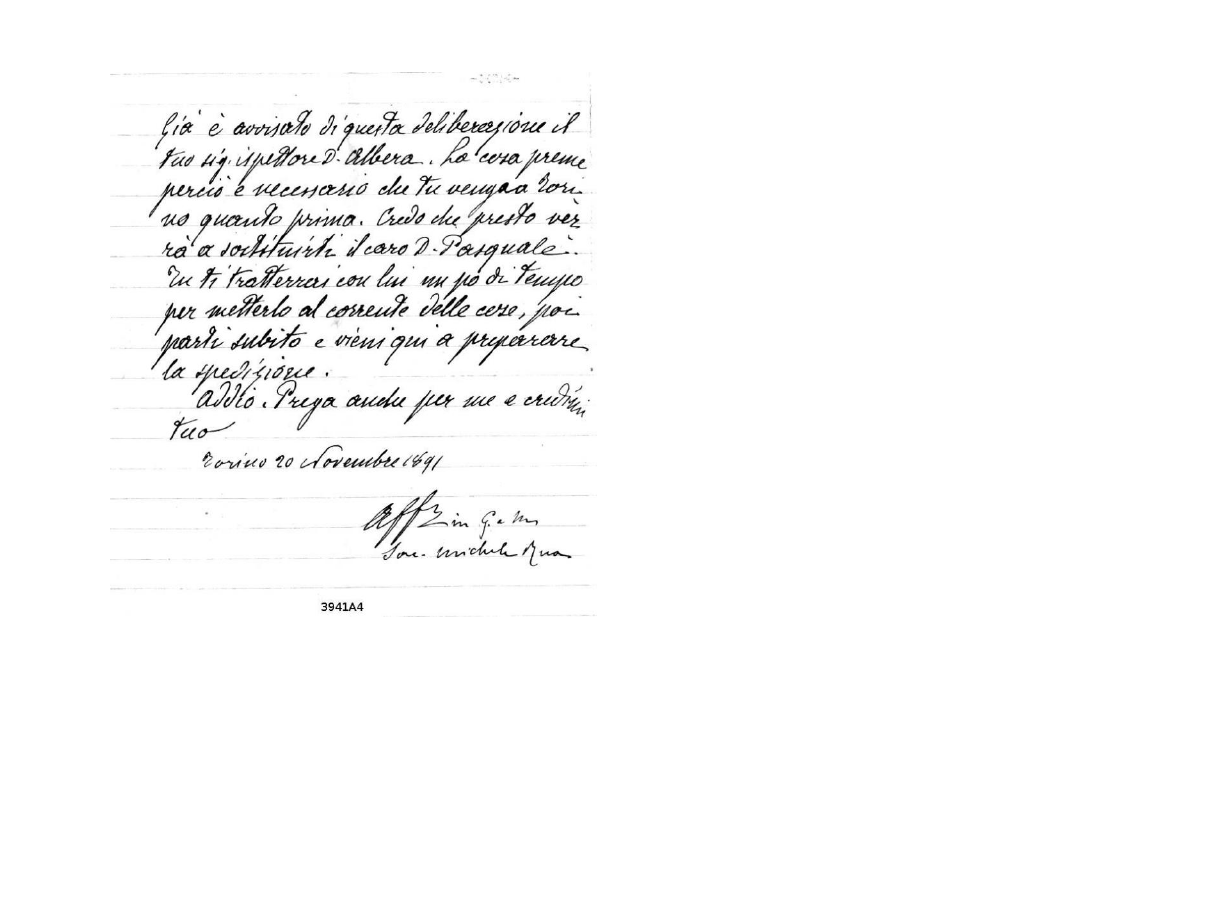 Già è avvisato di questa deliberazione il
tuo sig. ispettore D. Albera. La cosa preme
perciò è necessario che tu venga a Tori
no quanto prima. Credo che presto ver
rà a sostituirti il caro D. Pasquale.
Tu ti tratterrai con lui un pò di tempo
per metterlo al corrente delle cose, poi
parti subito e vieni qui a preparare
la spedizione.
Addio. Prega anche per me e credimi
tuo
Torino 20 Novembre 1891
Aff in G. e M.
Sac. Michele Rua
3941A4